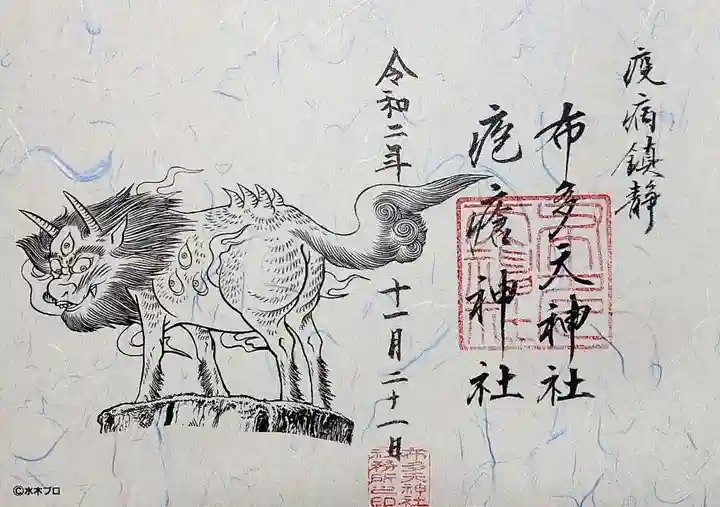 疫病鎮静
布多天神社
疱瘡神社
令和二年 十一月二十一日
布多天神社
社務所之印
©水木プロ